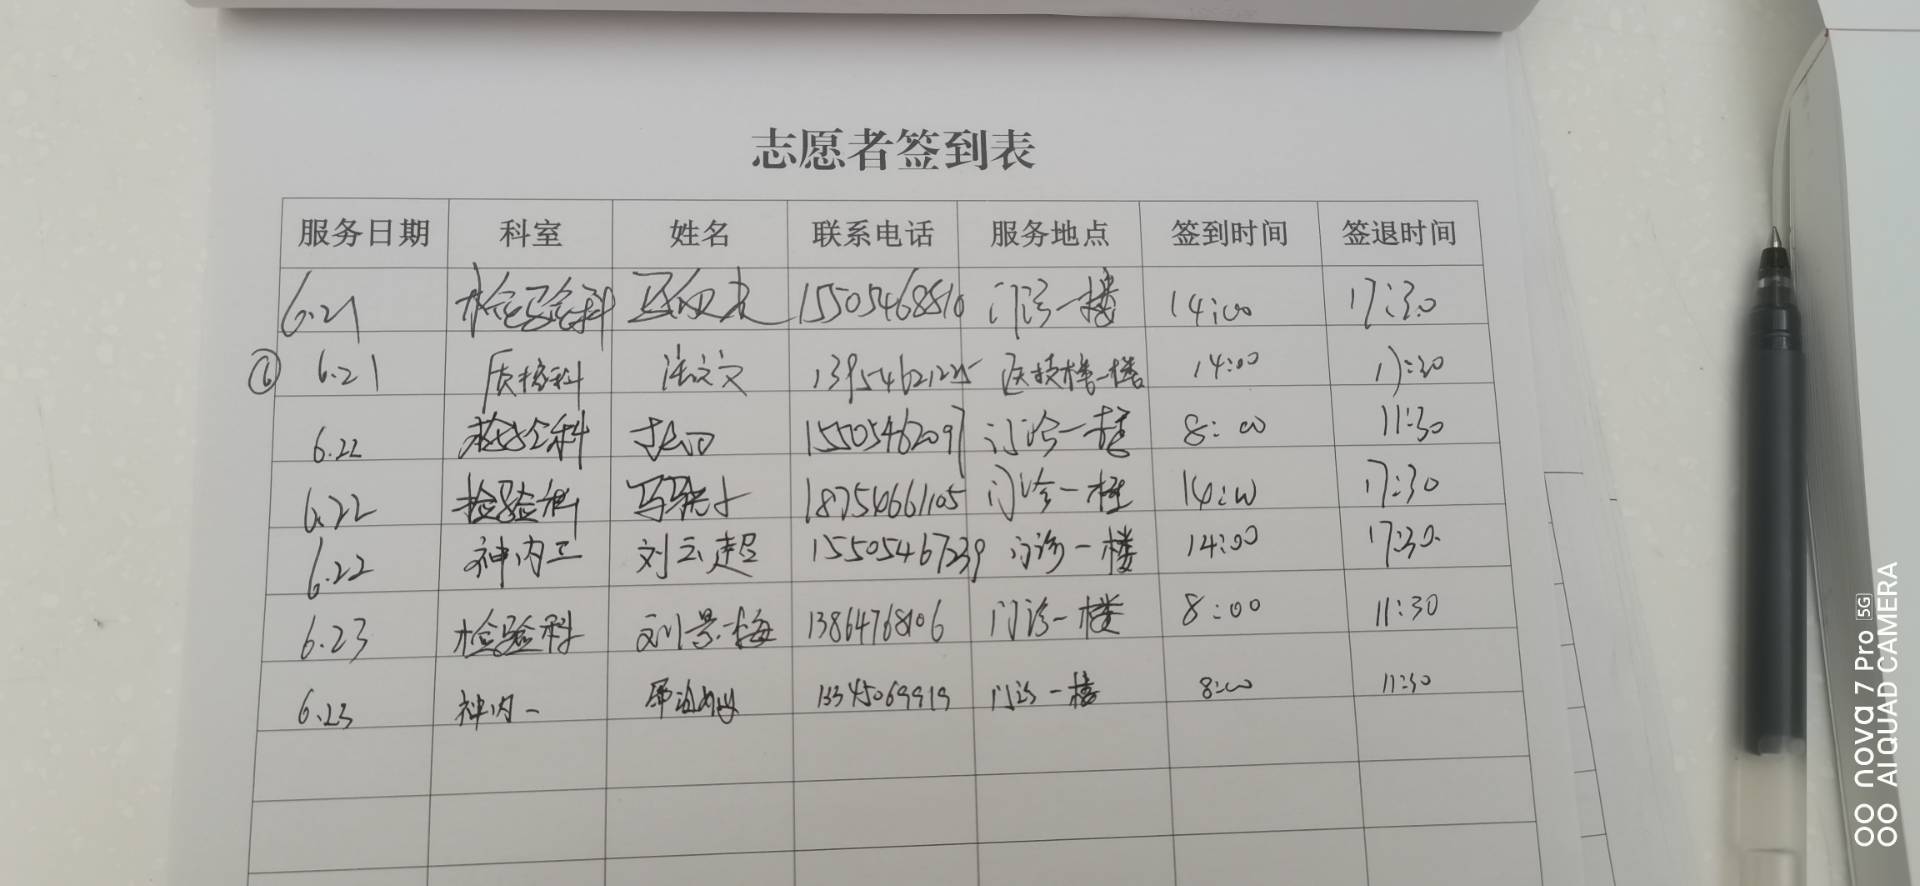 志愿者签到表
服务日期 科室 姓名 联系电话 服务地点 签到时间 签退时间
6.21 检验科 15505468810 门诊一楼 14:00 17:30
6.21 质控科 医技楼一楼 14:00 17:30
6.22 检验科 15505462097 门诊一楼 8:00 11:30
6.22 检验科 18754661105 门诊一楼 14:00 17:30
6.22 神内二 刘云超 15505467239 门诊一楼 14:00 17:30.
6.23 检验科 刘景梅 13864768106 门诊一楼 8:00 11:30
6.23 神内一 13345069919 门诊一楼 8:00 11:30
nova 7 Pro 5G
AI QUAD CAMERA